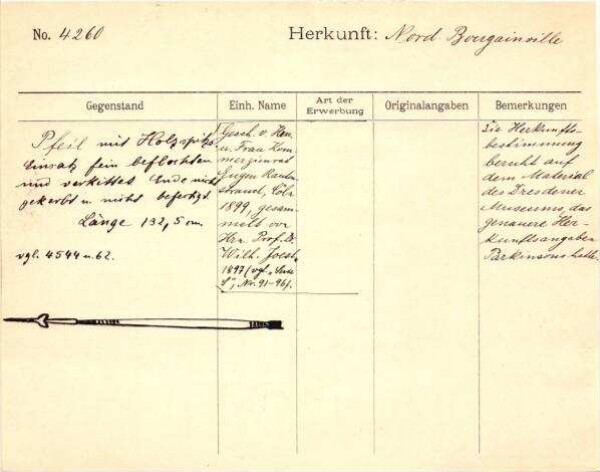 No. 4260
Herkunft: Nord Bougainville
Gegenstand
Einh. Name
Art der
Erwerbung
Originalangaben
Bemerkungen
Pfeil mit Holzspitze
Einsatz fein beflochten
und verkittet Ende nicht
gekerbt u. nicht befestigt.
Länge 132,5 cm
vgl. 4544 u. 62.
Gesch. v. Hrn.
u. Frau Kom-
merzienrat
Eugen Rauten-
strauch, Cöln
1899, gesam-
melt von
Hrn. Prof. Dr.
Wilh. Joest
1897 (vgl.
Nr. 91-96).
Die Herkunfts-
bestimmung
beruht auf
dem Material
des Dresdener
Museums, das
genauere Her-
kunftsangaben
Parkinsons hatte.